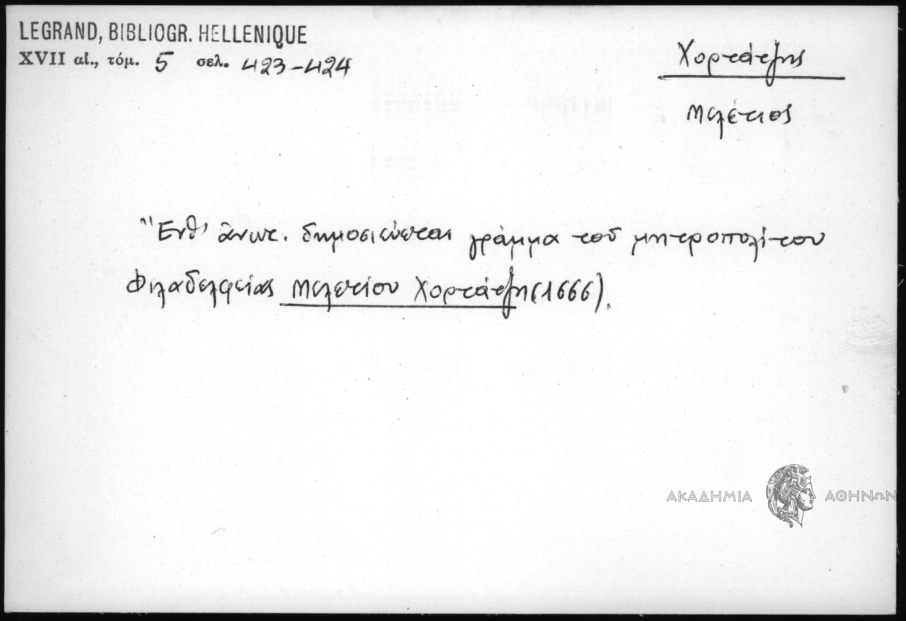 LEGRAND, BIBLIOGR. HELLENIQUE
XVII αἰ., τόμ. 5 σελ. 423-424
Χορτάτζης
Μελέτιος
Ἔνθ' ἄνωτ. δημοσιεύεται γράμμα τοῦ μητροπολίτου
Φιλαδελφείας Μελετίου Χορτάτζη (1666).
ΑΚΑΔΗΜΙΑ ΑΘΗΝΩΝ